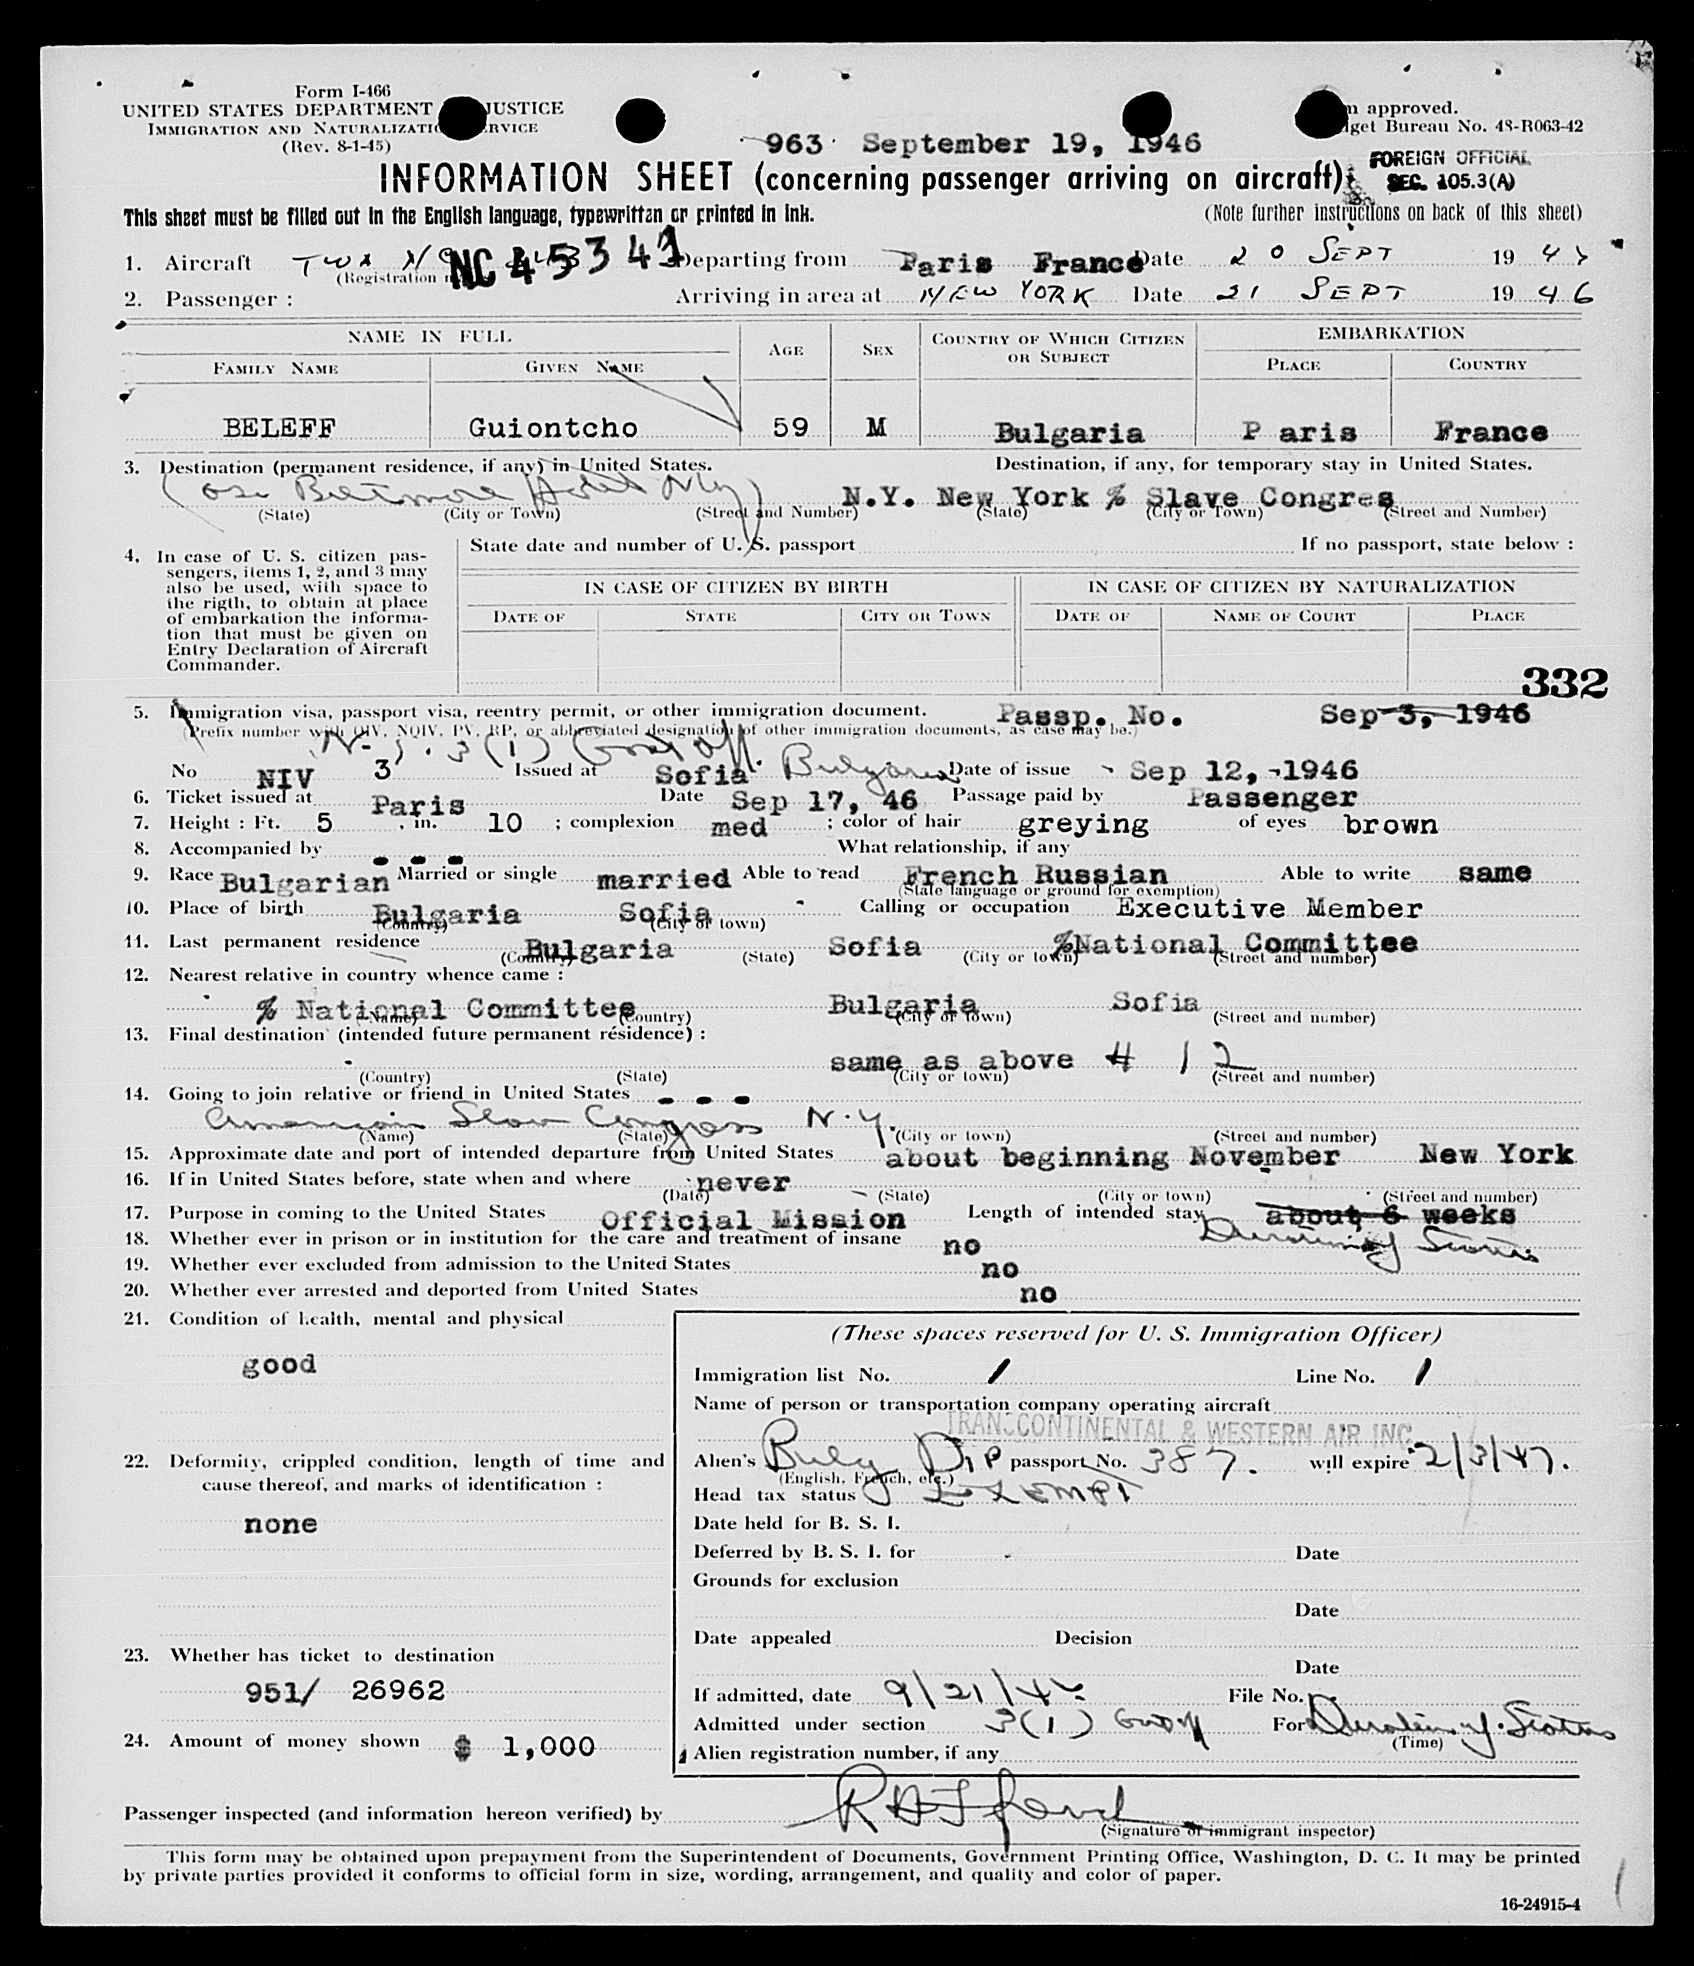 Form I-466
UNITED STATES DEPARTMENT JUSTICE
IMMIGRATION AND NATURALIZATION SERVICE
(Rev. 8-1-45)
approved.
Budget Bureau No. 43-R063-42
963 September 19, 1946
INFORMATION SHEET (concerning passenger arriving on aircraft)
FOREIGN OFFICIAL
SEC. 105.3(A)
This sheet must be filled out in the English language, typewritten or printed in ink.
(Note further instructions on back of this sheet)
1. Aircraft TWA NC 45343 Departing from Paris France Date 20 SEPT 19 46
(Registration
2. Passenger : Arriving in area at NEW YORK Date 21 SEPT 19 46
NAME IN FULL AGE SEX COUNTRY OF WHICH CITIZEN OR SUBJECT EMBARKATION
FAMILY NAME GIVEN NAME PLACE COUNTRY
BELEFF Guiontcho 59 M Bulgaria P aris France
3. Destination (permanent residence, if any) in United States. Destination, if any, for temporary stay in United States.
Biltmore Hotel NY) N.Y. New York % Slave Congres
(State) (City or Town) (Street and Number) (State) (City or Town) (Street and Number)
4. In case of U. S. citizen passengers, items 1, 2, and 3 may also be used, with space to the rigth, to obtain at place of embarkation the information that must be given on Entry Declaration of Aircraft Commander.
State date and number of U. S. passport If no passport, state below :
IN CASE OF CITIZEN BY BIRTH IN CASE OF CITIZEN BY NATURALIZATION
DATE OF STATE CITY OR TOWN DATE OF NAME OF COURT PLACE
332
5. Immigration visa, passport visa, reentry permit, or other immigration document. Passp. No. Sep 3, 1946
(Prefix number with QIV, NQIV, PV, RP, or abbreviated designation of other immigration documents, as case may be.)
3(1) Govt Off.
No NIV 3 Issued at Sofia Bulgaria Date of issue Sep 12, 1946
6. Ticket issued at Paris Date Sep 17, 46 Passage paid by Passenger
7. Height : Ft. 5 , in. 10 ; complexion med ; color of hair greying of eyes brown
8. Accompanied by - - - What relationship, if any
9. Race Bulgarian Married or single married Able to read French Russian Able to write same
(State language or ground for exemption)
10. Place of birth Bulgaria Sofia Calling or occupation Executive Member
(Country) (City or town)
11. Last permanent residence Bulgaria Sofia %National Committee
(Country) (State) (City or town) (Street and number)
12. Nearest relative in country whence came :
% National Committee Bulgaria Sofia
(Name) (Country) (City or Town) (Street and number)
13. Final destination (intended future permanent résidence) :
same as above # 12
(Country) (State) (City or town) (Street and number)
14. Going to join relative or friend in United States - - -
American Slav Congress N.Y.
(Name) (State) (City or town) (Street and number)
15. Approximate date and port of intended departure from United States about beginning November New York
16. If in United States before, state when and where never
(Date) (State) (City or town) (Street and number)
17. Purpose in coming to the United States Official Mission Length of intended stay about 6 weeks
Duration of Status
18. Whether ever in prison or in institution for the care and treatment of insane no
19. Whether ever excluded from admission to the United States no
20. Whether ever arrested and deported from United States no
21. Condition of health, mental and physical
good
22. Deformity, crippled condition, length of time and cause thereof, and marks of identification :
none
23. Whether has ticket to destination
951/ 26962
24. Amount of money shown $ 1,000
(These spaces reserved for U. S. Immigration Officer)
Immigration list No. 1 Line No. 1
Name of person or transportation company operating aircraft
TRANSCONTINENTAL & WESTERN AIR INC.
Alien's Bulg Dip passport No. 387. will expire 2/3/47.
(English, French, etc.)
Head tax status EXEMPT
Date held for B. S. I.
Deferred by B. S. I. for Date
Grounds for exclusion
Date
Date appealed Decision
Date
If admitted, date 9/21/46 File No.
Admitted under section 3(1) Govt Off For Duration of Status
(Time)
Alien registration number, if any
Passenger inspected (and information hereon verified) by
(Signature of immigrant inspector)
This form may be obtained upon prepayment from the Superintendent of Documents, Government Printing Office, Washington, D. C. It may be printed
by private parties provided it conforms to official form in size, wording, arrangement, and quality and color of paper.
16-24915-4